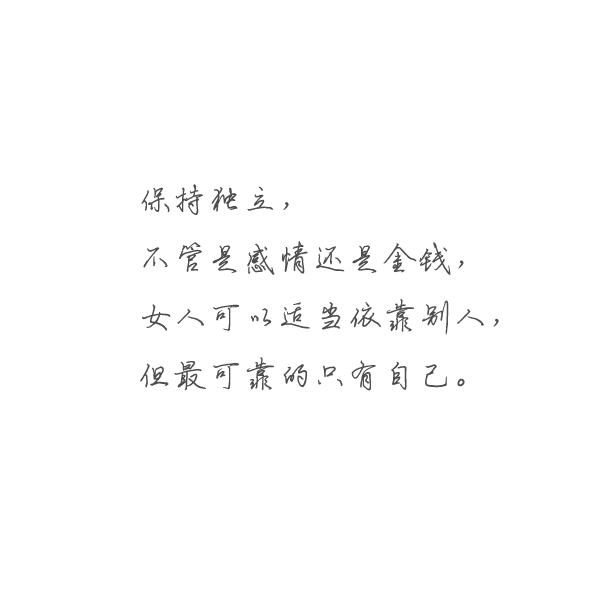 保持独立，
不管是感情还是金钱，
女人可以适当依靠别人，
但最可靠的只有自己。